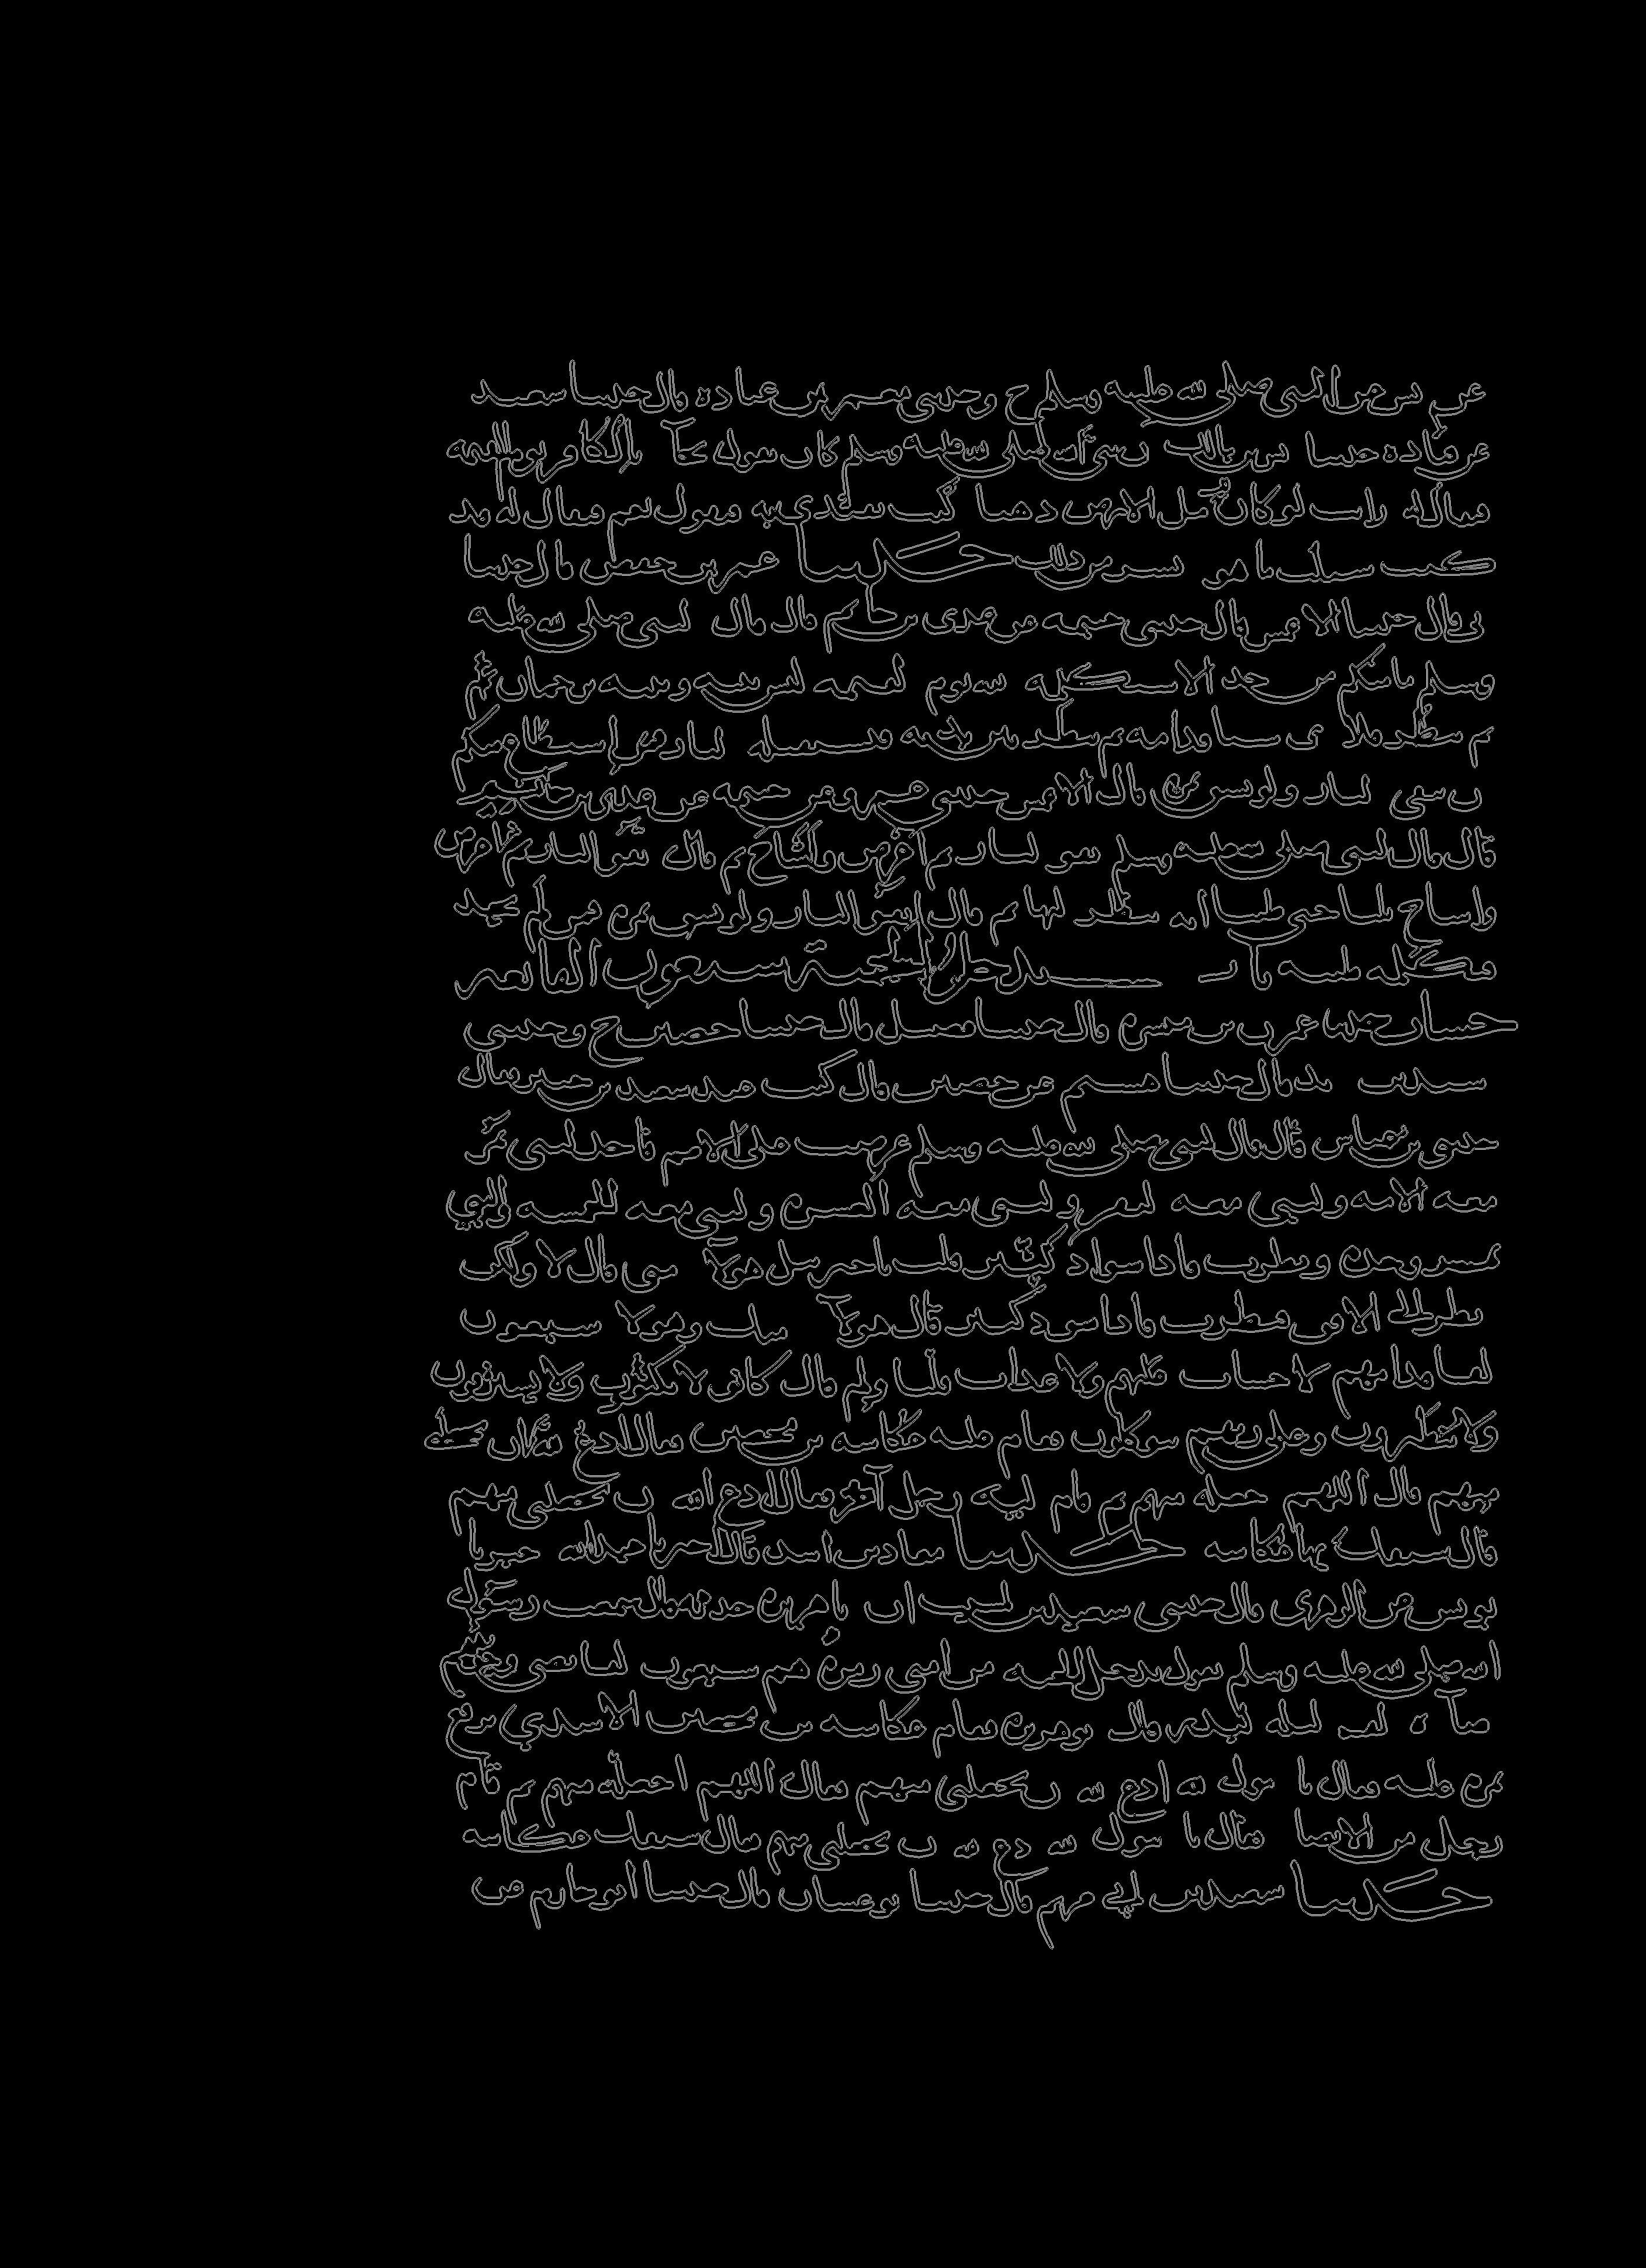 عن انس عن النبي صلى الله عليه وسلم ح وحدثني محمد بن معمر بن عبادة قال حدثنا سعيد
عن قتادة حدثنا انس بن مالك ان نبي الله صلى الله عليه وسلم كان يقول يجا بالكافر يوم القيمه
فيقال له ارايت لو كان لك مل الارض ذهبا اكنت تفتدي به فيقول نعم فيقال له قد
كنت سيلت ما هو ايسر من ذلك حدثنا عمر بن حفص قال حدثنا
ابي قال حدثنا الاعمش قال حدثني خيثمه عن عدي بن حاتم قال قال النبي صلى الله عليه
وسلم ما منكم من احد الا سيكلمه الله يوم القيمه ليس بينه وبينه ترجمان ثم
ثم ينظر فلا يرى شيا قدامه ثم ينظر بين يديه فتستقبله النار فمن استطاع منكم
ان يتقي النار ولو بشق تمرة قال الاعمش حدثني عمرو عن خيثمه عن عدي بن حاتم
قال قال النبي صلى الله عليه وسلم اتقوا النار ثم اعرض واشاح ثم قال اتقوا النار ثم اعرض
واشاح ثلثا حتى ظننا انه ينظر اليها ثم قال اتقوا النار ولو بشق تمرة فمن لم يجد
فبكلمه طيبه باب يدخل الجنة سبعون الفا بغير
حساب حدثنا عمران بن ميسرة قال حدثنا ابن فضيل قال حدثنا حصين ح وحدثني
اسيد بن زيد قال حدثنا هشيم عن حصين قال كنت عند سعيد بن جبير فقال
حدثني ابن عباس قال قال النبي صلى الله عليه وسلم عرضت علي الامم فاجد النبي يمر
معه الامه والنبي معه النفر والنبي معه العشرة والنبي معه الخمسه والنبي
يمر وحده ونظرت فاذا سواد كثير قلت يا جبريل هولا امتي قال لا ولكن
انظر الى الافق فنظرت فاذا سواد كثير قال هولا امتك وهولا سبعون
الفا قدامهم لا حساب عليهم ولا عذاب قلت ولم قال كانوا لا يكتوون ولا يسترقون
ولا يتطيرون وعلى ربهم يتوكلون فقام اليه عكاشه بن محصن فقال ادع الله ان يجعلني
منهم قال اللهم اجعله منهم ثم قام اليه رجل آخر فقال ادع الله ان يجعلني منهم
قال سبقك بها عكاشه حدثنا معاذ بن اسد قال اخبرنا عبد الله اخبرنا
يونس عن الزهري قال حدثني سعيد بن المسيب ان ابا هريرة حدثه قال سمعت رسول
الله صلى الله عليه وسلم يقول يدخل الجنه من امتي زمرة هم سبعون الفا تضي وجوههم
اضآة القمر ليله البدر قال ابو هريرة فقام عكاشه بن محصن الاسدي يرفع
نمرة عليه فقال يا رسول الله ادع الله ان يجعلني منهم فقال اللهم اجعله منهم ثم قام
رجل من الانصار فقال يا رسول الله ادع الله ان يجعلني منهم فقال سبقك عكاشه
حدثنا سعيد بن ابي مريم قال حدثنا ابو غسان قال حدثنا ابو حازم عن